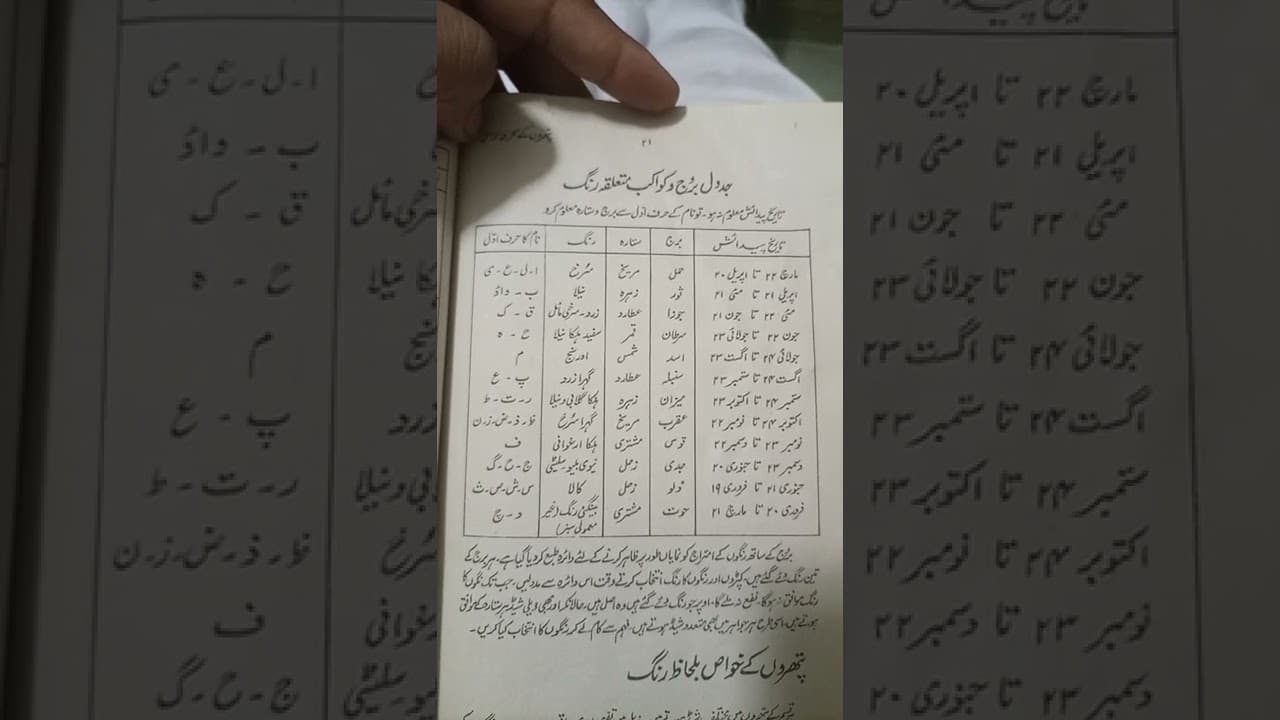 ۲۱
پتھروں کے
جدول بُرُج و کواکب متعلقہ رنگ
تاریخ پیدائش معلوم نہ ہو۔ تو نام کے حرف اوّل سے برج و ستارہ معلوم کرو۔
تاریخ پیدائش برج ستارہ رنگ نام کا حرف اوّل
مارچ ۲۲ تا اپریل ۲۰ حمل مریخ سُرخ ا۔ل۔ع۔ی
اپریل ۲۱ تا مئی ۲۱ ثور زہرہ نیلا ب۔ داؤ
مئی ۲۲ تا جون ۲۱ جوزا عطارد زرد۔سُرخی مائل ق۔ک
جون ۲۲ تا جولائی ۲۳ سرطان قمر سفید ہلکا نیلا ح۔ہ
جولائی ۲۴ تا اگست ۲۳ اسد شمس اورنج م
اگست ۲۴ تا ستمبر ۲۳ سنبلہ عطارد گہرا زرد پ۔ع
ستمبر ۲۴ تا اکتوبر ۲۳ میزان زہرہ ہلکا گلابی و نیلا ر۔ت۔ط
اکتوبر ۲۴ تا نومبر ۲۲ عقرب مریخ گہرا سُرخ ظ۔ذ۔ض۔ز۔ن
نومبر ۲۳ تا دسمبر ۲۲ قوس مشتری ہلکا ارغوانی ف
دسمبر ۲۳ تا جنوری ۲۰ جدی زحل نیوی بلیو۔سلیٹی ج۔ح۔گ
جنوری ۲۱ تا فروری ۱۹ دلو زحل کالا س۔ش۔ص۔ث
فروری ۲۰ تا مارچ ۲۱ حوت مشتری بینگنی رنگ (غیر د۔چ
معمولی سبز)
بُرج کے ساتھ رنگوں کے امتزاج کو نمایاں طور پر ظاہر کرنے کے لئے دائرہ طبع کر دیا گیا ہے، ہر برج کے
تین رنگ دئے گئے ہیں۔ کپڑوں اور رنگوں کا رنگ انتخاب کرتے وقت اس دائرہ سے مدد لیں۔ جب تک نگوں کا
رنگ موافق نہ ہوگا۔ نفع نہ ملے گا۔ اوپر جو رنگ دئے گئے ہیں وہ اصل ہیں، حالانکہ اور بھی ذیلی شیڈ ہر ستارہ کے موافق
ہوتے ہیں، اسی طرح ہر جواہر میں بھی متعدد شیڈ ہوتے ہیں، فہم سے کام لے کر رنگوں کا انتخاب کیا کریں۔
پتھروں کے خواص بلحاظ رنگ